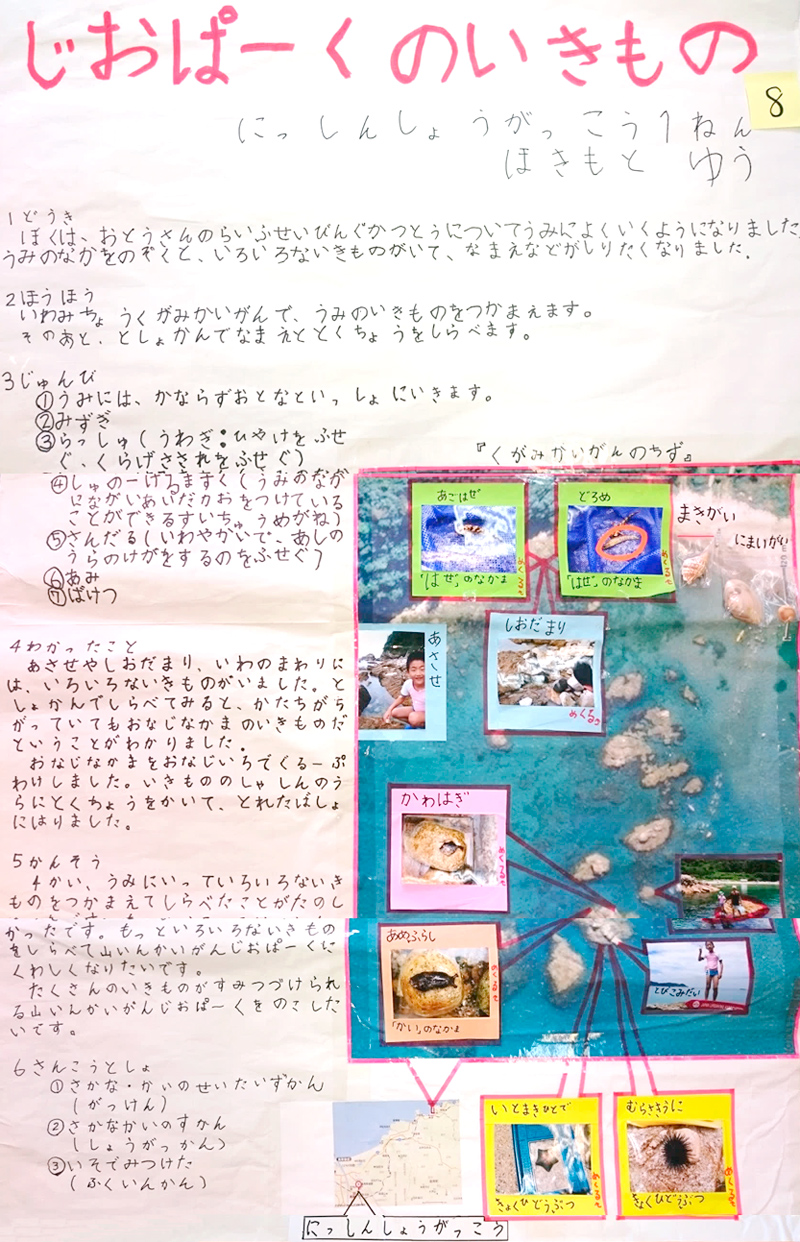 じおぱーくのいきもの
8
にっしんしょうがっこう1ねん
ほきもと ゆう
1どうき
ぼくは、おとうさんのらいふせいびんぐかつどうについてうみによくいくようになりました。
うみのなかをのぞくと、いろいろないきものがいて、なまえなどがしりたくなりました。
2ほうほう
いわみちょうくがみかいがんで、うみのいきものをつかまえます。
そのあと、としょかんでなまえととくちょうをしらべます。
3じゅんび
①うみには、かならずおとなといっしょにいきます。
②みずぎ
③らっしゅ(うわぎ:ひやけをふせ
ぐ、くらげさされをふせぐ)
④しゅのーけるますく(うみのなか
にながいあいだかおをつけている
ことができるすいちゅうめがね)
⑤さんだる(いわやかいで、あしの
うらのけがをするのをふせぐ)
⑥あみ
⑦ばけつ
4わかったこと
あさせやしおだまり、いわのまわりに
は、いろいろないきものがいました。と
しょかんでしらべてみると、かたちがち
がっていてもおなじなかまのいきものだ
ということがわかりました。
おなじなかまをおなじいろでぐるーぷ
わけしました。いきもののしゃしんのう
らにとくちょうをかいて、とれたばしょ
にはりました。
5かんそう
4かい、うみにいっていろいろないき
ものをつかまえてしらべたことがたのし
かったです。もっといろいろないきもの
をしらべて山いんかいがんじおぱーくに
くわしくなりたいです。
たくさんのいきものがすみつづけられ
る山いんかいがんじおぱーくをのこした
いです。
6さんこうとしょ
①さかな・かいのせいたいずかん
(がっけん)
②さかなかいのずかん
(しょうがっかん)
③いそでみつけた
(ふくいんかん)
『くがみかいがんのちず』
あごはぜ
めくるを
「はぜ」のなかま
どろめ
めくるを
「はぜ」のなかま
まきがい
にまいがい
あさせ
しおだまり
めくるを
かわはぎ
めくるを
あめふらし
めくるを
「かい」のなかま
とびこみだい
いとまきひとで
めくるを
きょくひどうぶつ
むらさきうに
めくるを
きょくひどうぶつ
にっしんしょうがっこう